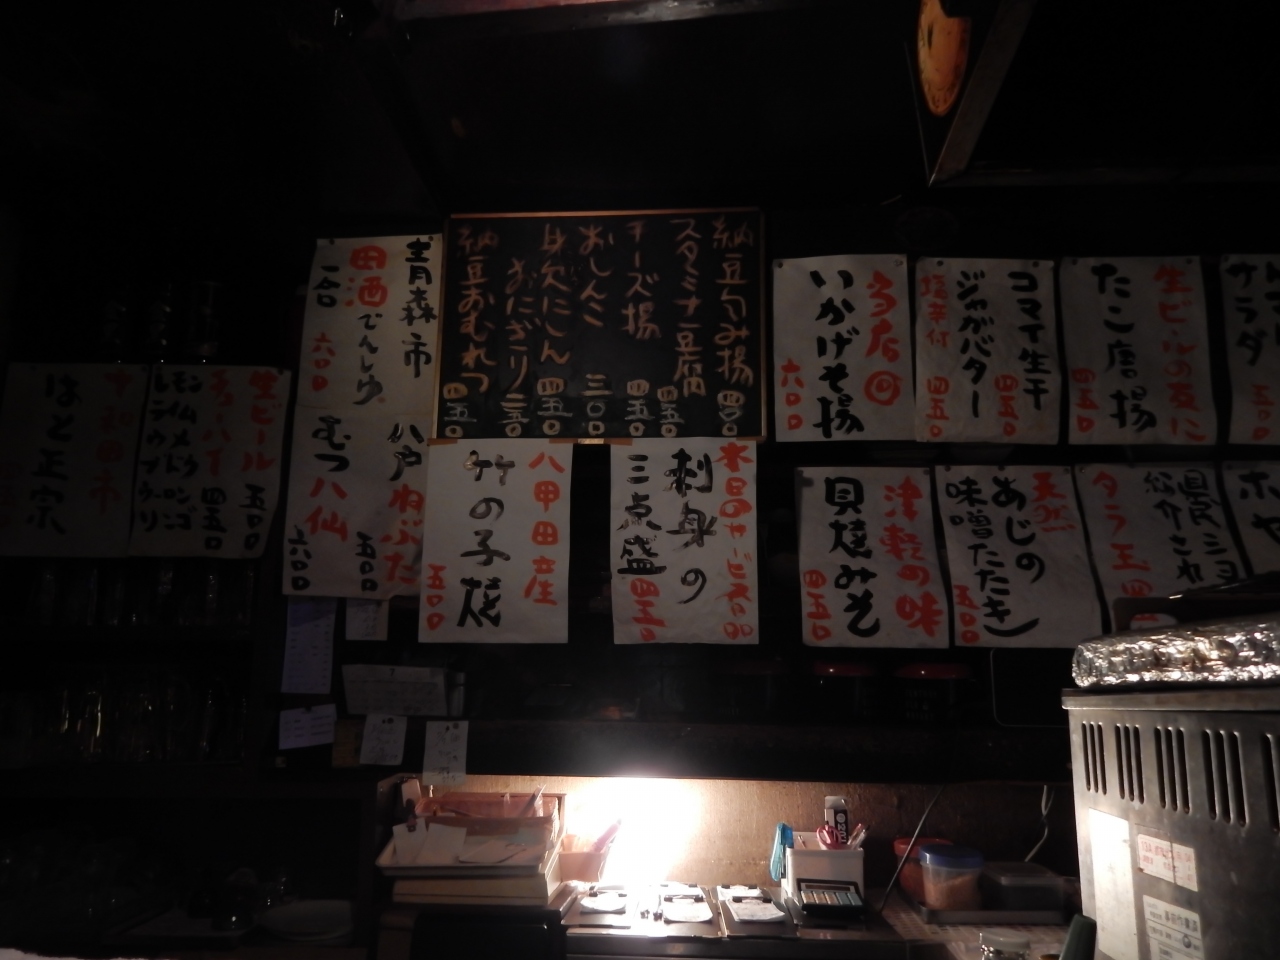 サラダ
生ビールの友に
たこ唐揚
四五〇
コマイ生干
四五〇
ジャガバター
塩辛付
四五〇
当店◎
いかげそ揚
六〇〇
納豆包み揚
スタミナ豆腐
四五〇
チーズ揚
四五〇
おしんこ
三〇〇
身欠にしん
四五〇
おにぎり
納豆おむれつ
四五〇
青森市
田酒でんしゅ
一合
六〇〇
八戸
むつ八仙
六〇〇
ねぶた
五〇〇
生ビール
五〇〇
酎ハイ
四五〇
レモン
ライム
ウメ
ブドウ
ウーロン
リンゴ
十和田市
はと正宗
ホヤ
タラ玉
天然
あじの
味噌たたき
五〇〇
津軽の味
貝焼みそ
四五〇
本日のサービス品
刺身の
三点盛
四五〇
八甲田産
竹の子焼
五〇〇